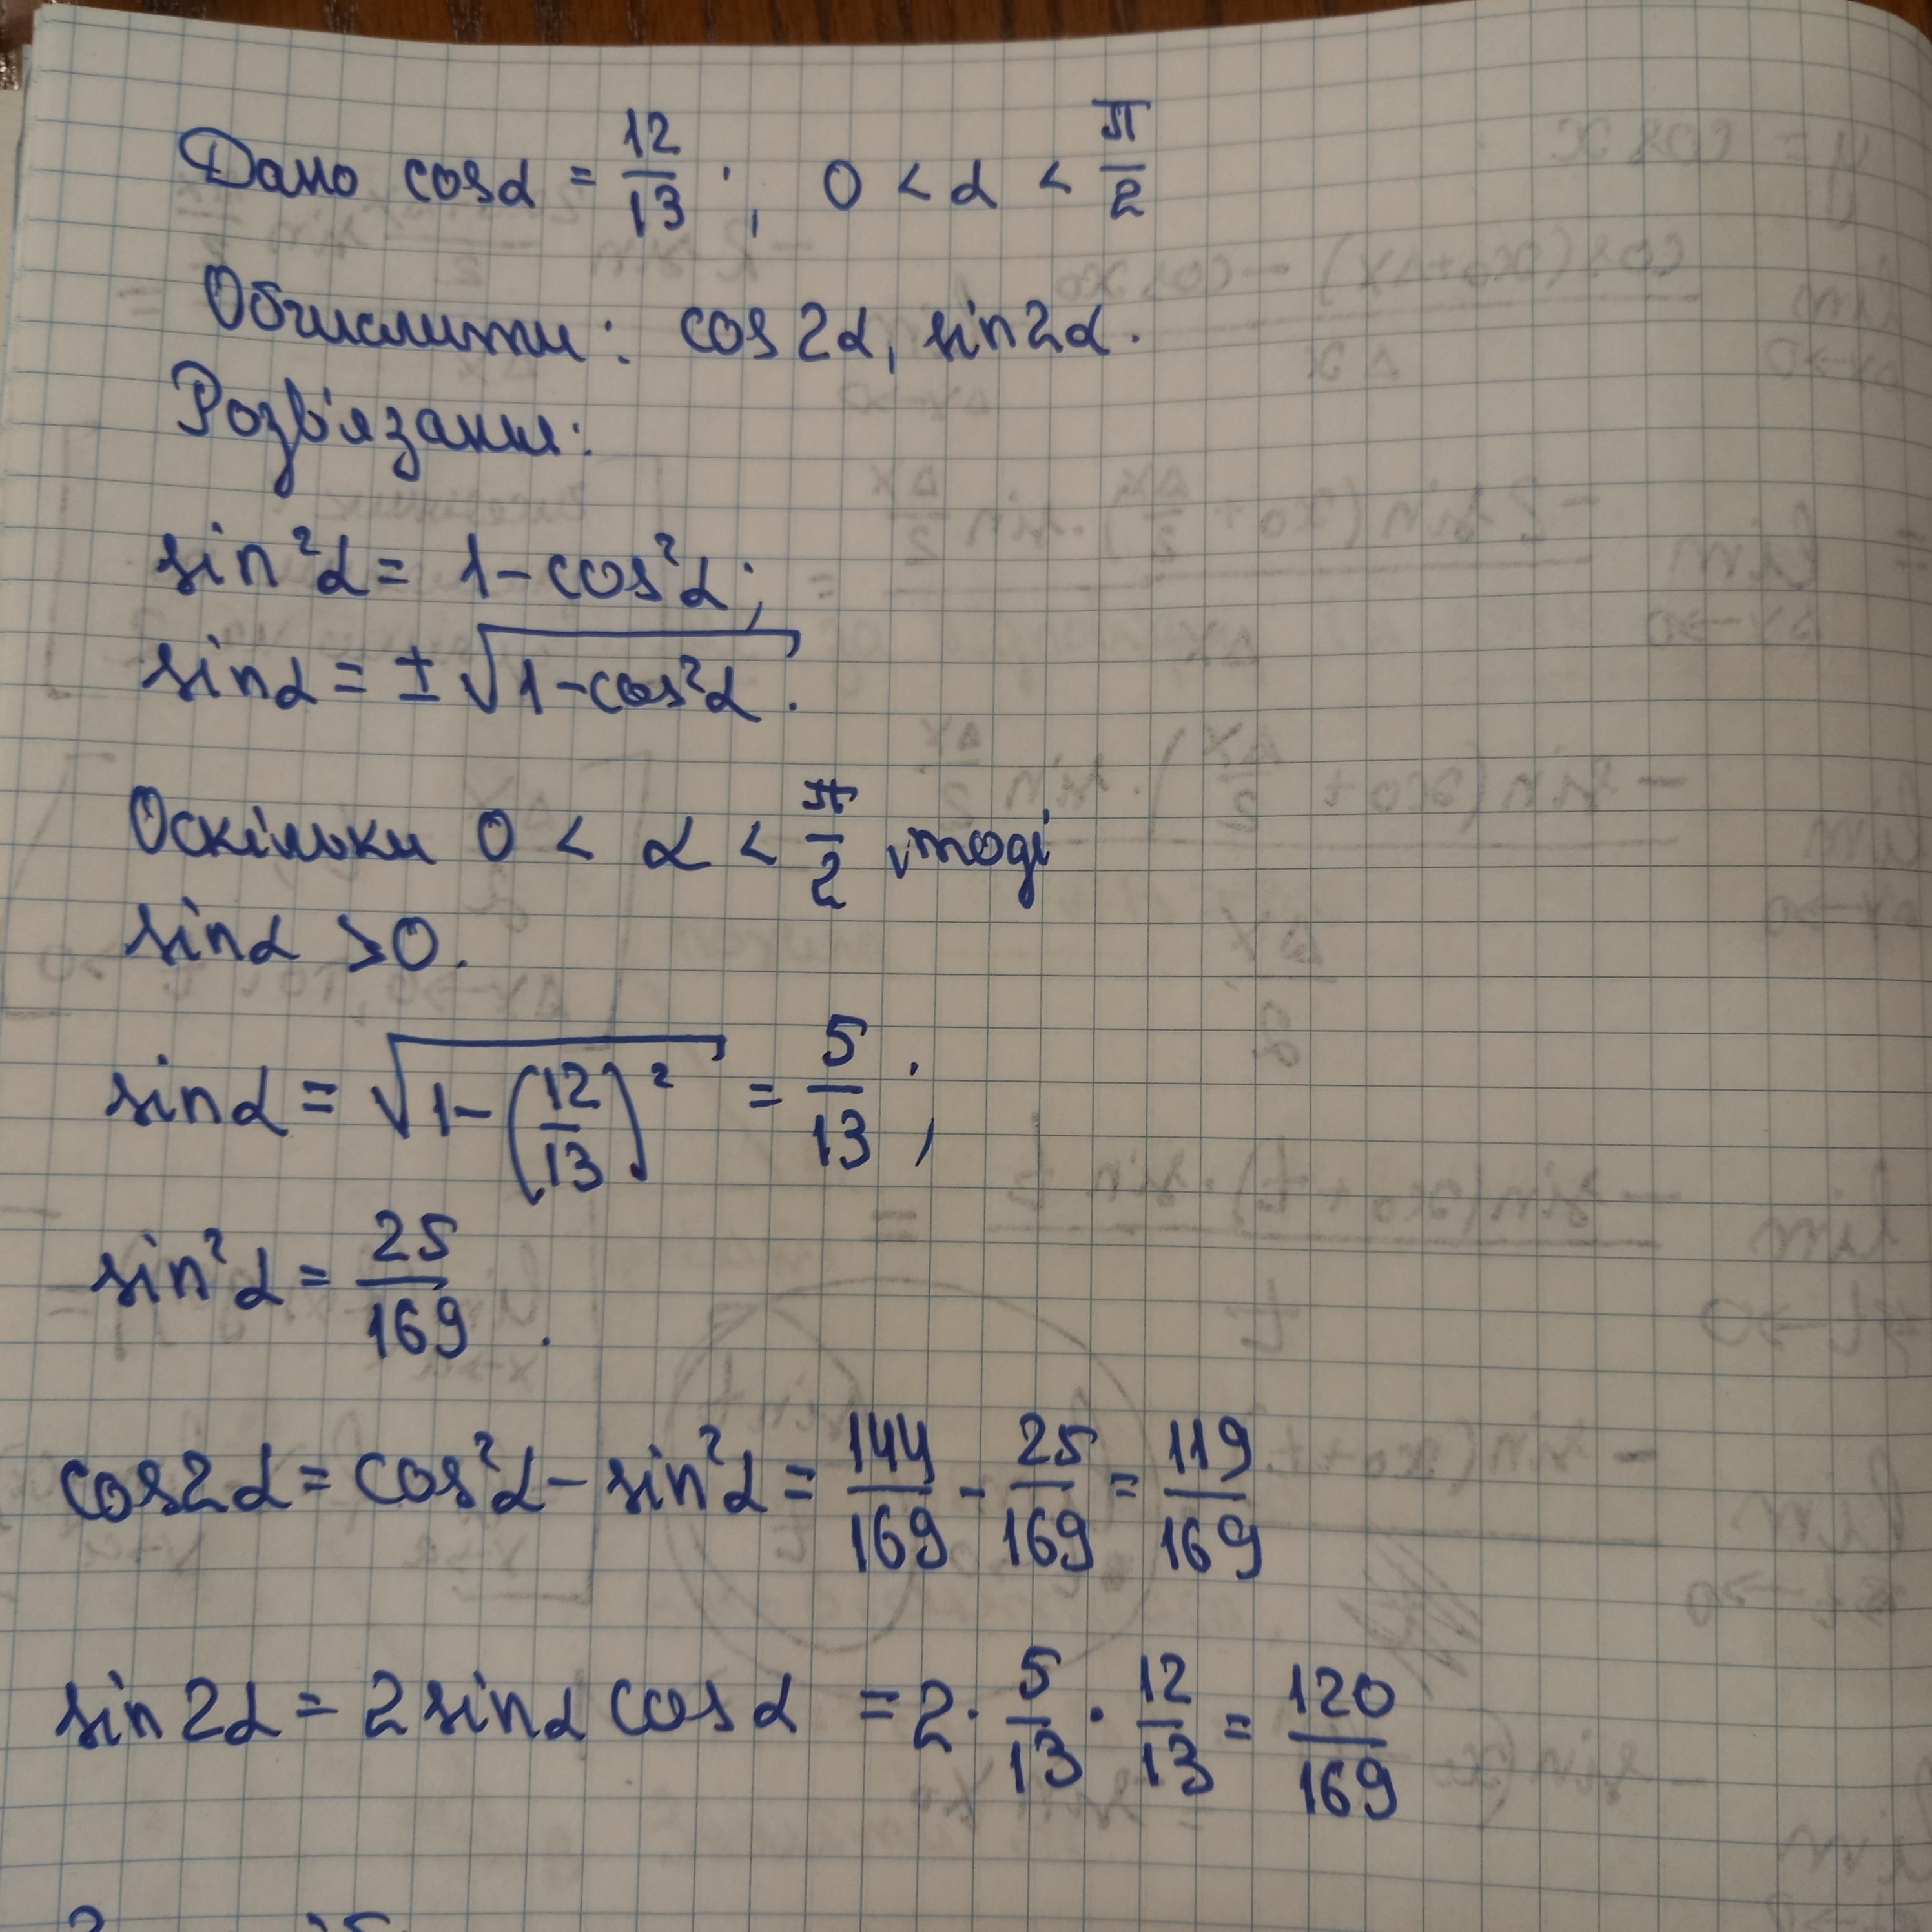 Дано cosα = 12/13; 0 < α < π/2
Обчислити: cos2α, sin2α.
Розв'язання:
sin²α = 1 - cos²α;
sinα = ± √(1 - cos²α).
Оскільки 0 < α < π/2, тоді
sinα > 0.
sinα = √(1 - (12/13)²) = 5/13;
sin²α = 25/169.
cos2α = cos²α - sin²α = 144/169 - 25/169 = 119/169
sin2α = 2sinα cosα = 2 · 5/13 · 12/13 = 120/169